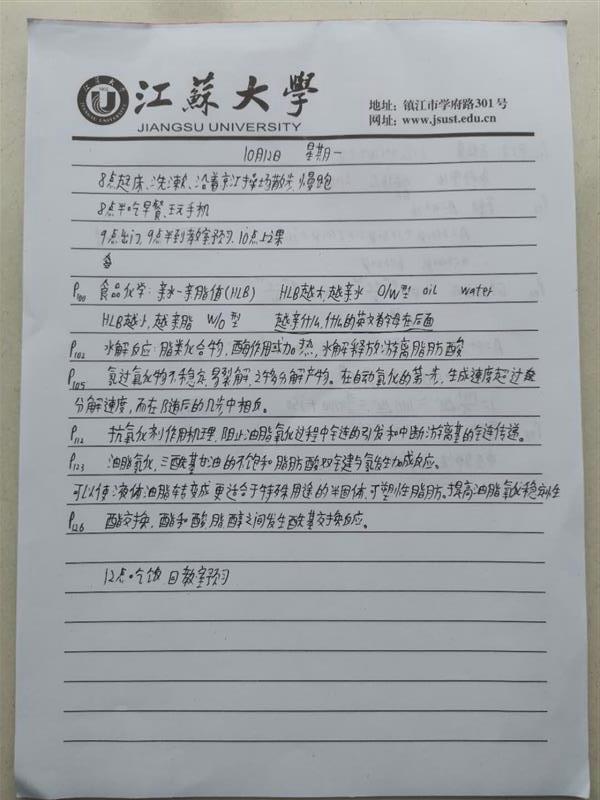 江苏大学
JIANGSU UNIVERSITY
地址：镇江市学府路301号
网址：www.jsust.edu.cn
10月12日 星期一
8点起床、洗漱、沿着京江操场散步、慢跑
8点半吃早餐、玩手机
9点出门，9点半到教室预习，10点上课
P100 食品化学：亲水-亲脂值(HLB) HLB越大，越亲水 O/W型 oil water
HLB越小，越亲脂 W/O型 越亲什么，什么的英文首字母在后面
P102 水解反应：脂类化合物，酶作用或加热，水解释放游离脂肪酸
P105 氢过氧化物不稳定，易裂解，2级分解产物。在自动氧化的第一步，生成速度超过
分解速度，而在随后的几步中相反。
P112 抗氧化剂作用机理，阻止油脂氧化过程中链的引发和中断游离基的链传递。
P123 油脂氢化，三酰基甘油的不饱和脂肪酸双键与氢发生加成反应。
可以使液体油脂转变成更适合于特殊用途的半固体、可塑性脂肪。提高油脂氧化稳定性
P126 酯交换，酯和酸、脂、醇之间发生酰基交换反应。
12点吃饭 回教室预习